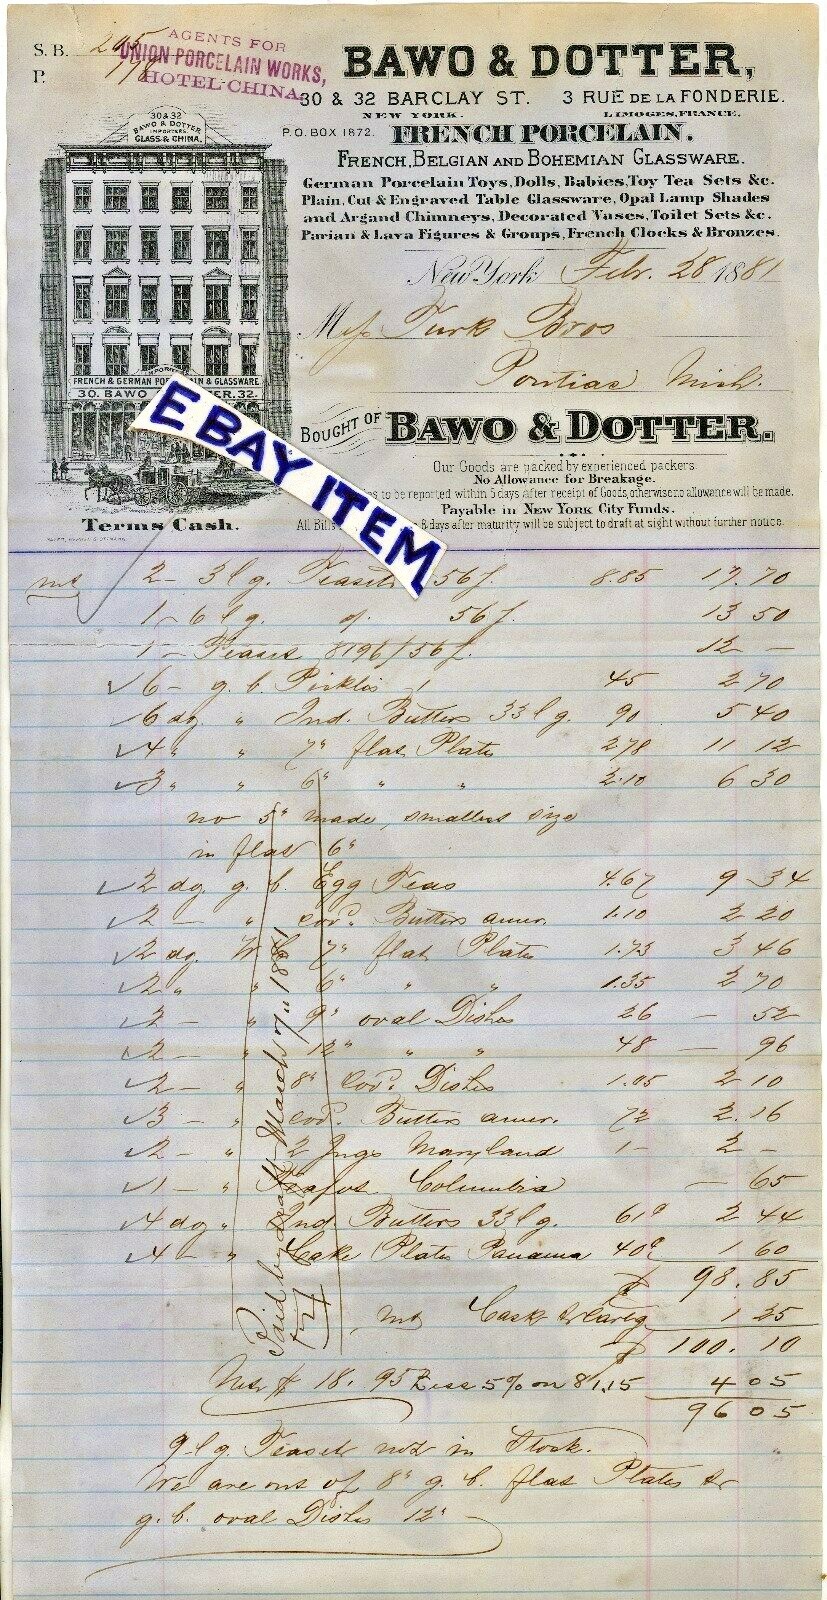 S. B. 295
P. 178
AGENTS FOR
UNION PORCELAIN WORKS,
HOTEL-CHINA
BAWO & DOTTER,
30 & 32 BARCLAY ST. 3 RUE DE LA FONDERIE.
NEW YORK. LIMOGES, FRANCE.
P.O. BOX 1872. FRENCH PORCELAIN.
FRENCH, BELGIAN AND BOHEMIAN GLASSWARE.
German Porcelain Toys, Dolls, Babies, Toy Tea Sets &c.
Plain, Cut & Engraved Table Glassware, Opal Lamp Shades
and Argand Chimneys, Decorated Vases, Toilet Sets &c.
Parian & Lava Figures & Groups, French Clocks & Bronzes.
30 & 32
BAWO & DOTTER
IMPORTERS
GLASS & CHINA.
FRENCH & GERMAN PO & GLASSWARE
30. BAWO TER. 32.
Terms Cash.
New York Febr. 28 1881
Mess Turk Bros
Pontiac Mich.
BOUGHT OF BAWO & DOTTER.
Our Goods are packed by experienced packers.
No Allowance for Breakage.
to be reported within 5 days after receipt of Goods, otherwise no allowance will be made.
Payable in New York City Funds.
All Bills & days after maturity will be subject to draft at sight without further notice.
EBAY ITEM
2 - 3 l g. Teasets 56 f. 8.85 17.70
1 - 6 l g. do. 56 f. 13 50
1 - Teaset 8196/56 f. 12 -
6 - g. b. Pickles 45 2 70
6 dz " Ind. Butters 33 l g. 90 5 40
4 " " 7" flat Plates 2.78 11 12
3 " " 6" " " 2.10 6 30
no 5" made, smallest size
in flat 6"
2 dz g. b. Egg Teas 4.67 9 34
2 - " cov'd. Butters amer. 1.10 2 20
2 dz. W. G. 7" flat Plates 1.73 3 46
2 " " 6" " " 1.35 2 70
2 - " 9" oval Dishes 26 - 52
2 - " 12" " " 48 - 96
2 - " 8" Cov'd. Dishes 1.05 2 10
3 - " cov'd. Butters amer. 72 2.16
2 - " 2 Jugs Maryland 1 - 2 -
1 - " Columbia - 65
4 dz " Ind Butters 33 l g. 61 2 44
4 - " Cake Plates Panama 40 1 60
$ 98.85
Cask & Cartg 1 25
$ 100.10
Net $ 18.95 Less 5% on 81.15 4 05
96 05
Paid by Draft March 7" 1881
9 l g. Teaset not in Stock.
We are out of 8" g. b. flat Plates &
g. b. oval Dishes 12"